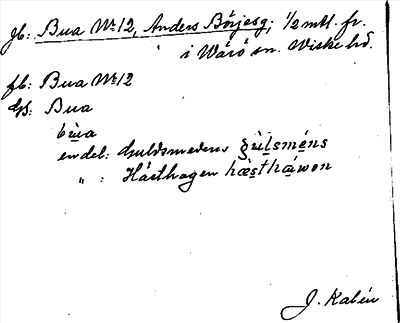 Jb: Bua Nr 12, Anders Börjesg; 1/2 mtl. fr.
i Wärö sn. Wiske hd.
fb: Bua Nr 12
Gs: Bua
bùa
en del: Guldsmedens gùlsméns
" : Hästhagen hæ̀sthàwon
J. Kalén